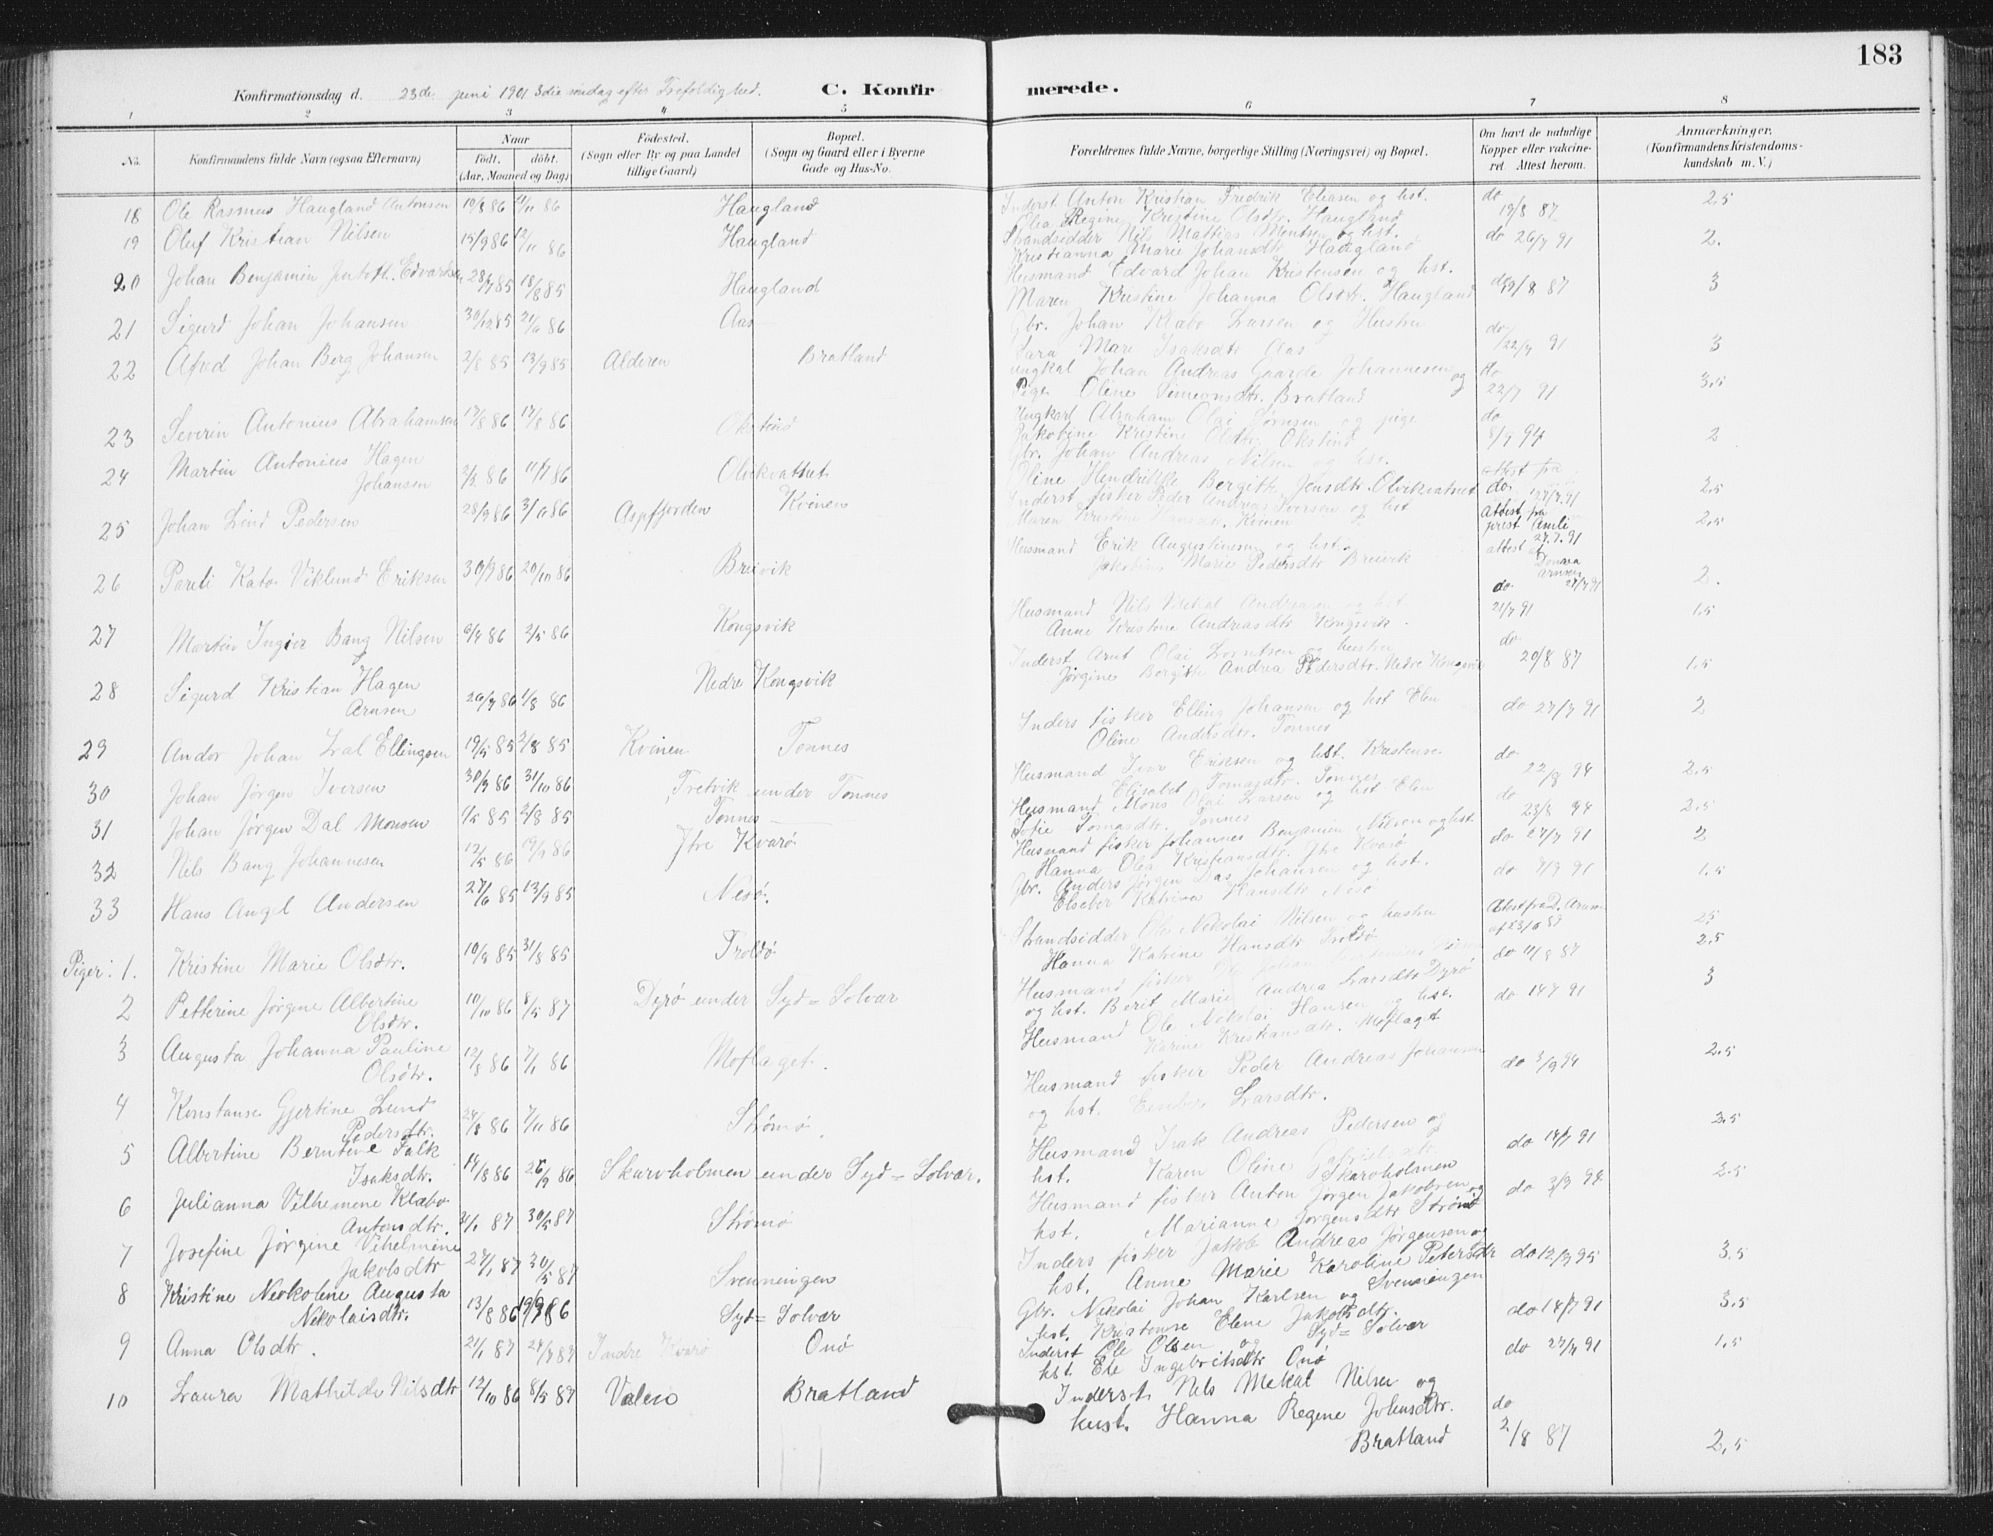 183
Konfirmationsdag d. 23de juni 1901 3die søndag efter Trefoldighed. C. Konfirmerede.
1 2 3 4 5 6 7 8
No. Konfirmandens fulde Navn (ogsaa Efternavn) Naar født. døbt. (Aar, Maaned og Dag) Fødested. (Sogn eller By og paa Landet tillige Gaard) Bopæl. (Sogn og Gaard eller i Byerne Gade og Hus-No. Forældrenes fulde Navne, borgerlige Stilling (Næringsvei) og Bopæl. Om havt de naturlige Kopper eller vakcineret. Attest herom. Anmærkninger. (Konfirmandens Kristendomskundskab m. V.)
18 Ole Rasmus Haugland Antonsen 86 86 Haugland Inderst Anton Kristian Fredrik Eliasen og hst. do 19/8 87 2.5
Olea Regine Kristine Olsdtr. Haugland
19 Oluf Kristian Nilsen 15/9 86 86 Haugland Strandsidder Nils Mattias Mentsen og hst. do 26/7 91 2.
Kristianna Marie Johansdtr Haugland
20 Johan Benjamin Edvardsen 28/7 85 18/8 85 Haugland Husmand Edvard Johan Kristensen og hst. do 19/8 87 3
Maren Kristine Johanna Olsdtr. Haugland
21 Sigurd Johan Johansen 30/12 85 86 Aas Gbr. Johan Klabo Larsen og Hustru do 22/7 91 3
Sara Mari Isaksdtr Aas
22 Alfred Johan Berg Johansen 2/8 85 13/9 85 Alderen Bratland ungkal Johan Andreas Gaarde Johannesen og do 22/7 91 3.5
Pige Oline Simeonsdtr. Bratland
23 Severin Antonius Abrahamsen 86 17/8 86 Okstind Ungkarl Abraham Olai Jørnsen og pige do 94 2
Jakobine Kristine Olsdtr. Okstind
24 Martin Antonius Hagen Johansen 86 11/7 86 Olvikvattnet Gbr. Johan Andreas Nilsen og hst. attest fra do 27/7.91 2.5
Oline Hendrikke Bergitte Jensdtr. Olvikvatnet
25 Johan Lind Pedersen 28/9 86 86 Aspfjorden Kvinen Inderst fisker Peder Andreas Iversen og hst Attest fra prest Amli 27.7.91 2.5
Maren Kristine Kvinen
26 Pareli Kato Viklund Eriksen 30/7 86 20/10 86 Breivik Husmand Erik Augustinusen og hst. attest af Dønna do 27/7 91 2.
Jakobine Marie Pedersdtr Breivik
27 Martin Ingier Bang Nilsen 86 2/5 86 Kongsvik Husmand Nils Mekal Andreasen og hst 21/7 91 1.5
Anne Kristine Andreasdtr Kongsvik.
28 Sigurd Kristian Hagen Arnsen 86 1/8 86 Nedre Kongsvik Inderst Arnt Olai Lorntsen og hustru do 20/8 87 1.5
Jørgine Bergitte Andrea Pedersdtr. Nedre Kongsvik
29 Andor Johan Dal Ellingsen 19/5 85 2/8 85 Kvinen Tonnes Inders fisker Elling Johansen og hst Elen do 27/7 91 2
Oline Andersdtr. Tonnes
30 Johan Jørgen Iversen 86 31/10 86 Tretvik under Tonnes Husmand Iver Eriksen og hst. Kristense do 22/8 94 2.5
Elisabet Tomasdtr. Tonnes
31 Johan Jørgen Dal Monsen 85 2/8 85 Tonnes Husmand Mons Olai Larsen og hst Elen do 23/8 94 2.5
Sofie Tomasdtr. Tonnes
32 Nils Bang Johannesen 12/5 86 86 Ytre Kvarø Husmand fisker Johannes Benjamin Nilsen og hst. do 27/7 91 2
Hanna Olea Kristiansdtr. Ytre Kvarø
33 Hans Angel Andersen 27/6 85 13/9 85 Nesø. Gbr. Anders Jørgen Das Johansen og hst. do 91 1.5
Elseber Katrina Hansdtr Nesø
Piger: 1. Kristine Marie Olsdtr. 10/8 85 31/8 85 Troldø Strandsidder Ole Nikolai Nilsen og hustru Attest fra 2.5
Hanna Katrine Hansdtr Troldø
2 Petterine Jørgine Albertine Olsdtr. 10/10 86 8/5 87 Dyrø under Syd=Solvær Husmand fisker do 11/8 87 2.5
og hst. Berit Marie Andrea Larsdtr Dyrø
3 Augusta Johanna Pauline Olsdtr. 12/8 86 86 Moflaget. Husmand Ole Nikolai Hansen og hst. do 14/7 91 3
Karine Kristiansdtr. Moflaget
4 Konstanse Gjertine Lund Pedersdtr. 24/8 86 7/11 86 Strømø Husmand fisker Peder Andreas Johansen do 3/9 94 2.5
og hst. Larsdtr.
5 Albertine Berntine Falk Isaksdtr. 14/8 86 26/9 86 Skarvholmen under Syd=Solvær. Husmand Isak Andreas Pedersen og do 14/7 91 2.5
hst. Karen Oline Skarvholmen
6 Julianna Vilhemine Klabo Antonsdtr. 87 30/5 87 Strømø Husmand fisker Anton Jørgen Jakobsen og do 3/9 94 2.5
hst. Marianne Jørgensdtr Strømø
7 Josefine Jørgine Vihelmine Jakobsdtr 27/1 87 30/5 87 Svenningen Inders fisker Jakob Andreas Jørgensen og do 12/9 95 3.5
hst. Anne Marie Karoline Petersdtr Svenningen
8 Kristine Nevkoline Augusta Nikolaisdtr. 13/8 86 19/9 86 Syd=Solvær Gbr. Nikolai Johan Karlsen og do 14/7 91 3.5
hst. Kristense Elene Jakobsdtr. Syd=Solvær
9 Anna Olsdtr. 21/1 87 87 Indre Kvarø Onø Inderst Ole Olsen og do 27/7 91 1.5
hst Ele Ingebritsdtr Onø
10 Laura Mathilde Nilsdtr 12/10 86 8/5 87 Valen Bratland Inderst Nils Mekal Nilsen og do 2/8 87 2,5
hust. Hanna Regine Johnsdtr. Bratland